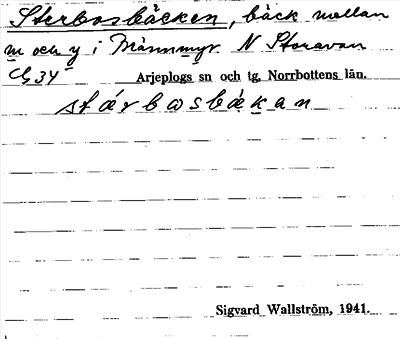 Sterbosbäcken, bäck mellan
m och y i Månnmyr. N Storavan
G 34 Arjeplogs sn och tg, Norrbottens län.
stǽrbɷsbǽkan
Sigvard Wallström, 1941.